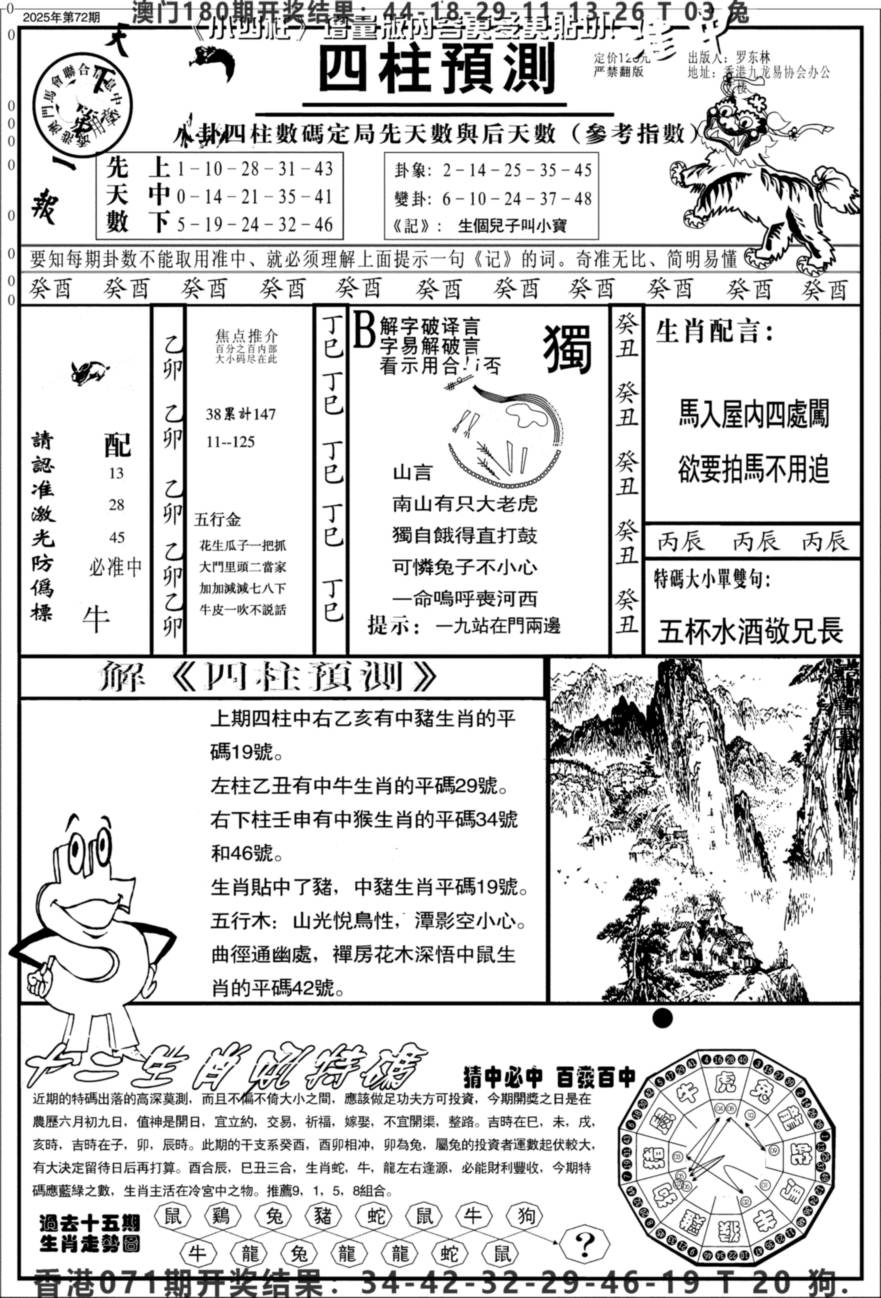 2025年第72期
澳门180期开奖结果：44-18-29-11-13-26 T 03 兔
四柱預測
定价12
严禁翻版
出版人：罗东林
地址：香港九龙易协会办公
天
下
第
一
報
八卦四柱數碼定局先天數與后天數（參考指數）
先天數
上 1-10-28-31-43
中 0-14-21-35-41
下 5-19-24-32-46
卦象：2-14-25-35-45
變卦：6-10-24-37-48
《記》：生個兒子叫小寶
要知每期卦数不能取用准中、就必须理解上面提示一句《记》的词。奇准无比、简明易懂
癸酉 癸酉 癸酉 癸酉 癸酉 癸酉 癸酉 癸酉 癸酉 癸酉 癸酉
請認准激光防僞標
配
13
28
45
必准中
牛
乙卯
乙卯
乙卯
乙卯
乙卯
焦点推介
百分之百内部
大小码尽在此
38累計147
11--125
五行金
花生瓜子一把抓
大門里頭二當家
加加減減七八下
牛皮一吹不説話
丁巳
丁巳
丁巳
丁巳
丁巳
B
解字破译言
字易解破言
看示用合 否
獨
山言
南山有只大老虎
獨自餓得直打鼓
可憐兔子不小心
一命嗚呼喪河西
提示：一九站在門兩邊
癸丑
癸丑
癸丑
癸丑
癸丑
生肖配言：
馬入屋内四處闖
欲要拍馬不用追
丙辰 丙辰 丙辰
特碼大小單雙句：
五杯水酒敬兄長
解《四柱預測》
上期四柱中右乙亥有中豬生肖的平
碼19號。
左柱乙丑有中牛生肖的平碼29號。
右下柱壬申有中猴生肖的平碼34號
和46號。
生肖貼中了豬，中豬生肖平碼19號。
五行木：山光悅鳥性，潭影空小心。
曲徑通幽處，禪房花木深悟中鼠生
肖的平碼42號。
十二生肖配特碼
猜中必中 百發百中
近期的特碼出落的高深莫測，而且不偏不倚大小之間，應該做足功夫方可投資，今期開獎之日是在
農歷六月初九日，值神是開日，宜立約，交易，祈福，嫁娶，不宜開渠，整路。吉時在巳，未，戌，
亥時，吉時在子，卯，辰時。此期的干支系癸酉，酉卯相冲，卯為兔，屬兔的投資者運數起伏較大，
有大決定留待日后再打算。酉合辰，巳丑三合，生肖蛇，牛，龍左右逢源，必能財利豐收，今期特
碼應藍綠之數，生肖主活在冷宮中之物。推薦9，1，5，8組合。
過去十五期
生肖走勢圖
鼠 鷄 兔 豬 蛇 鼠 牛 狗
牛 龍 兔 龍 龍 蛇 鼠 ?
香港071期开奖结果：34-42-32-29-46-19 T 20 狗.